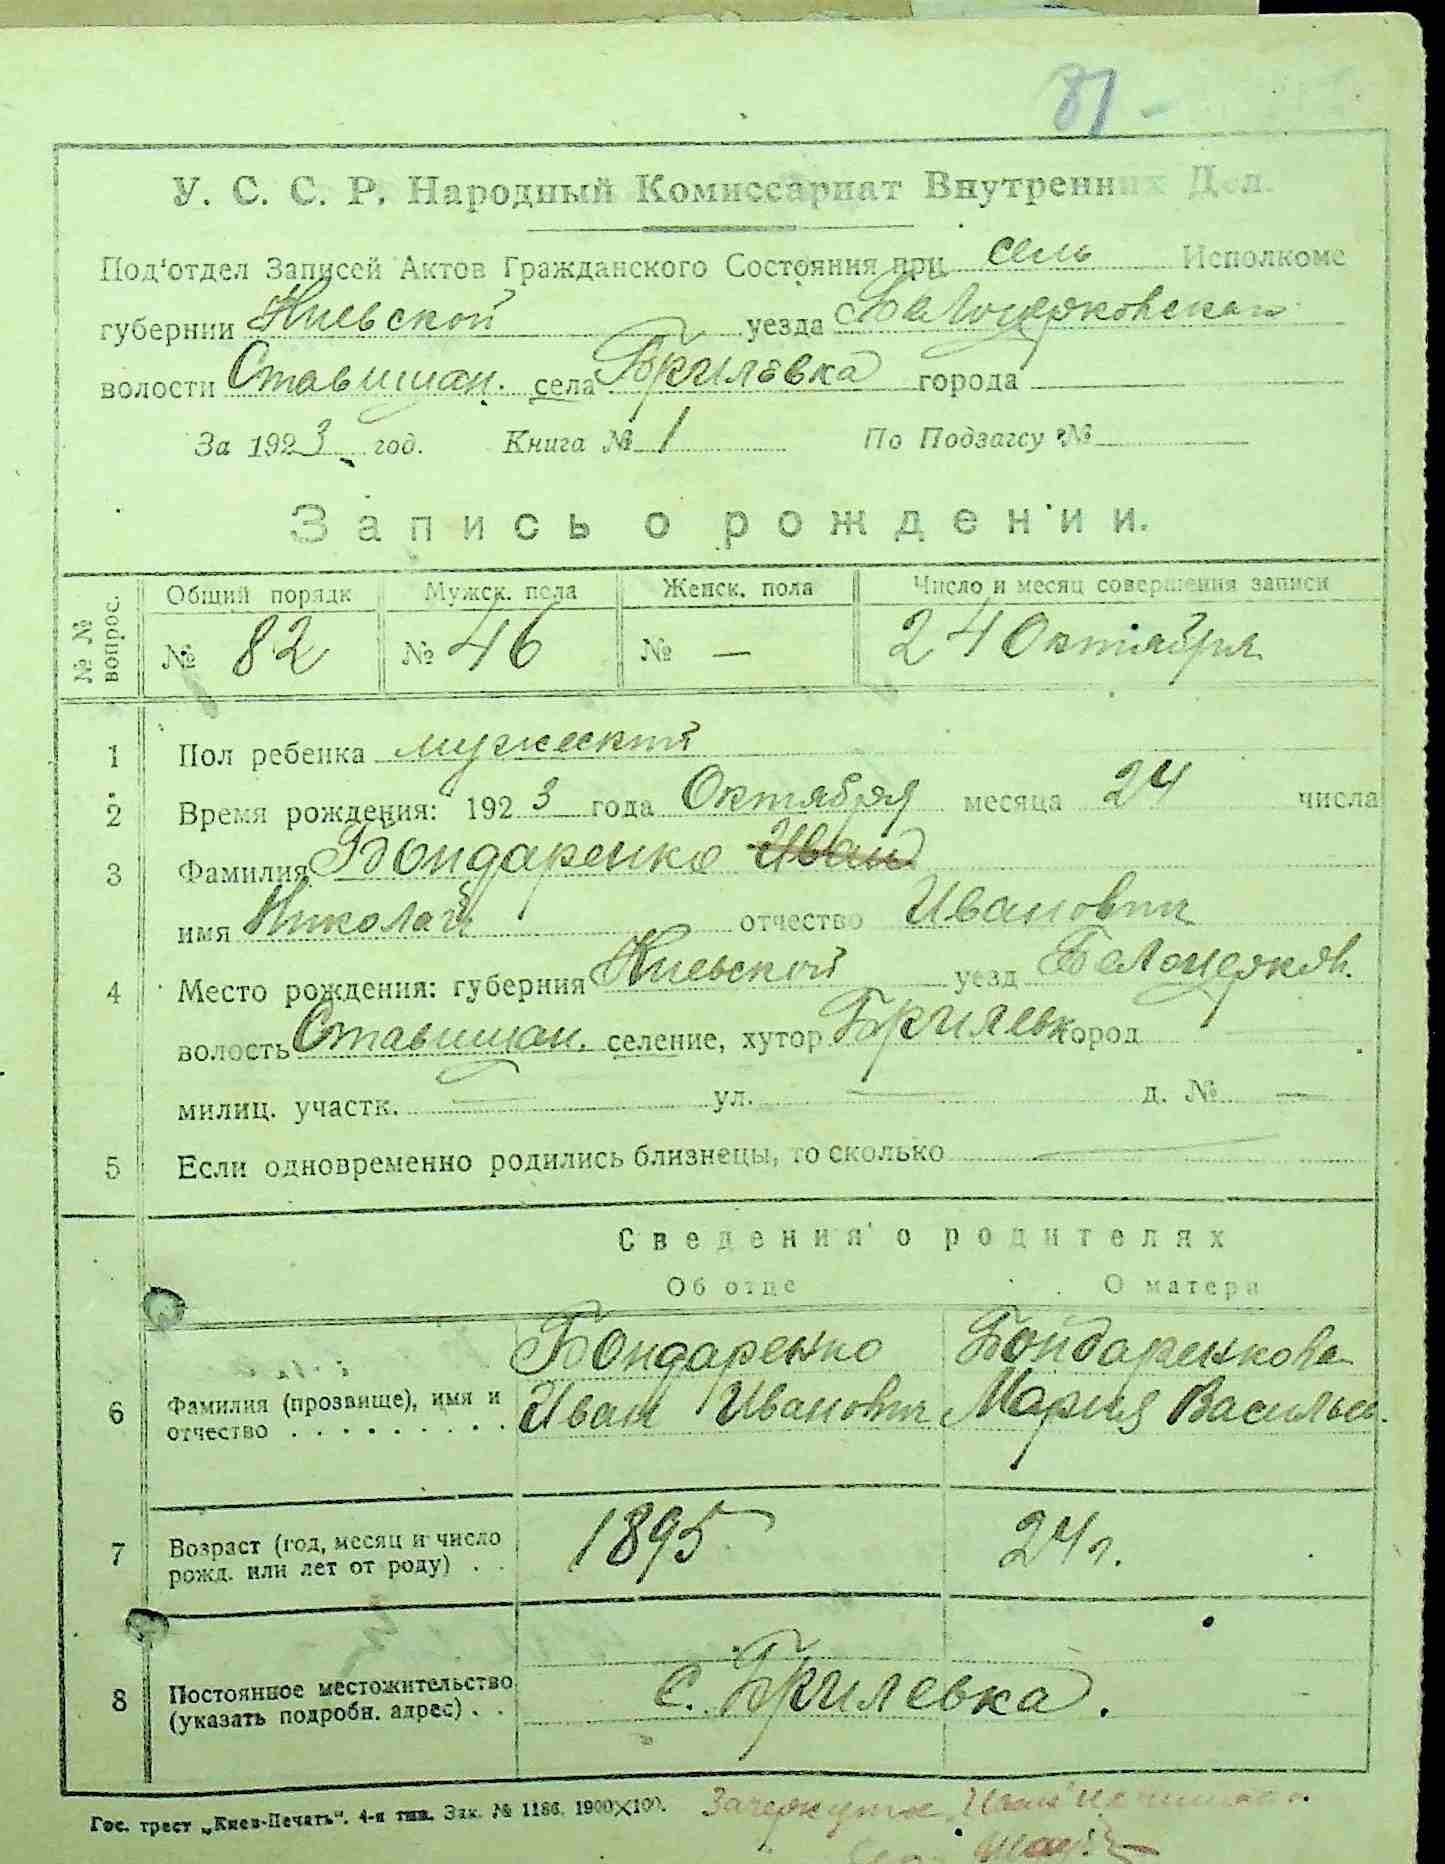 81 -
У. С. С. Р. Народный Комиссариат Внутренних Дел.
Под'отдел Записей Актов Гражданского Состояния при сель Исполкоме
губернии Киевской уезда Белоцерковскаго
волости Ставищан. села Брилевка города
За 1923 год. Книга № 1 По Подзагсу №
Запись о рождении.
№ № вопрос. Общий порядк Мужск. пола Женск. пола Число и месяц совершения записи
№ 82 № 46 № — 24 Октября
1 Пол ребенка мужеский
2 Время рождения: 1923 года Октября месяца 24 числа
3 Фамилия Бондаренко Иван
имя Николай отчество Иванович
4 Место рождения: губерния Киевской уезд Белоцерков.
волость Ставищан. селение, хутор Брилевк город
милиц. участк. — ул. — д. № —
5 Если одновременно родились близнецы, то сколько —
Сведения о родителях
Об отце О матери
Бондаренко Бондаренкова
6 Фамилия (прозвище), имя и отчество . . . . . . . . . . Иван Иванович Мария Васильев.
7 Возраст (год, месяц и число рожд. или лет от роду) . . 1895 24 г.
8 Постоянное местожительство (указать подробн. адрес) . . с. Брилевка.
Гос. трест „Киев-Печать". 4-я тип. Зак. № 1186. 1900×100. Зачеркнутое „Иван"